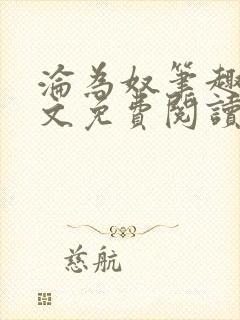 淪為奴筆趣
文免費閱讀
慈航